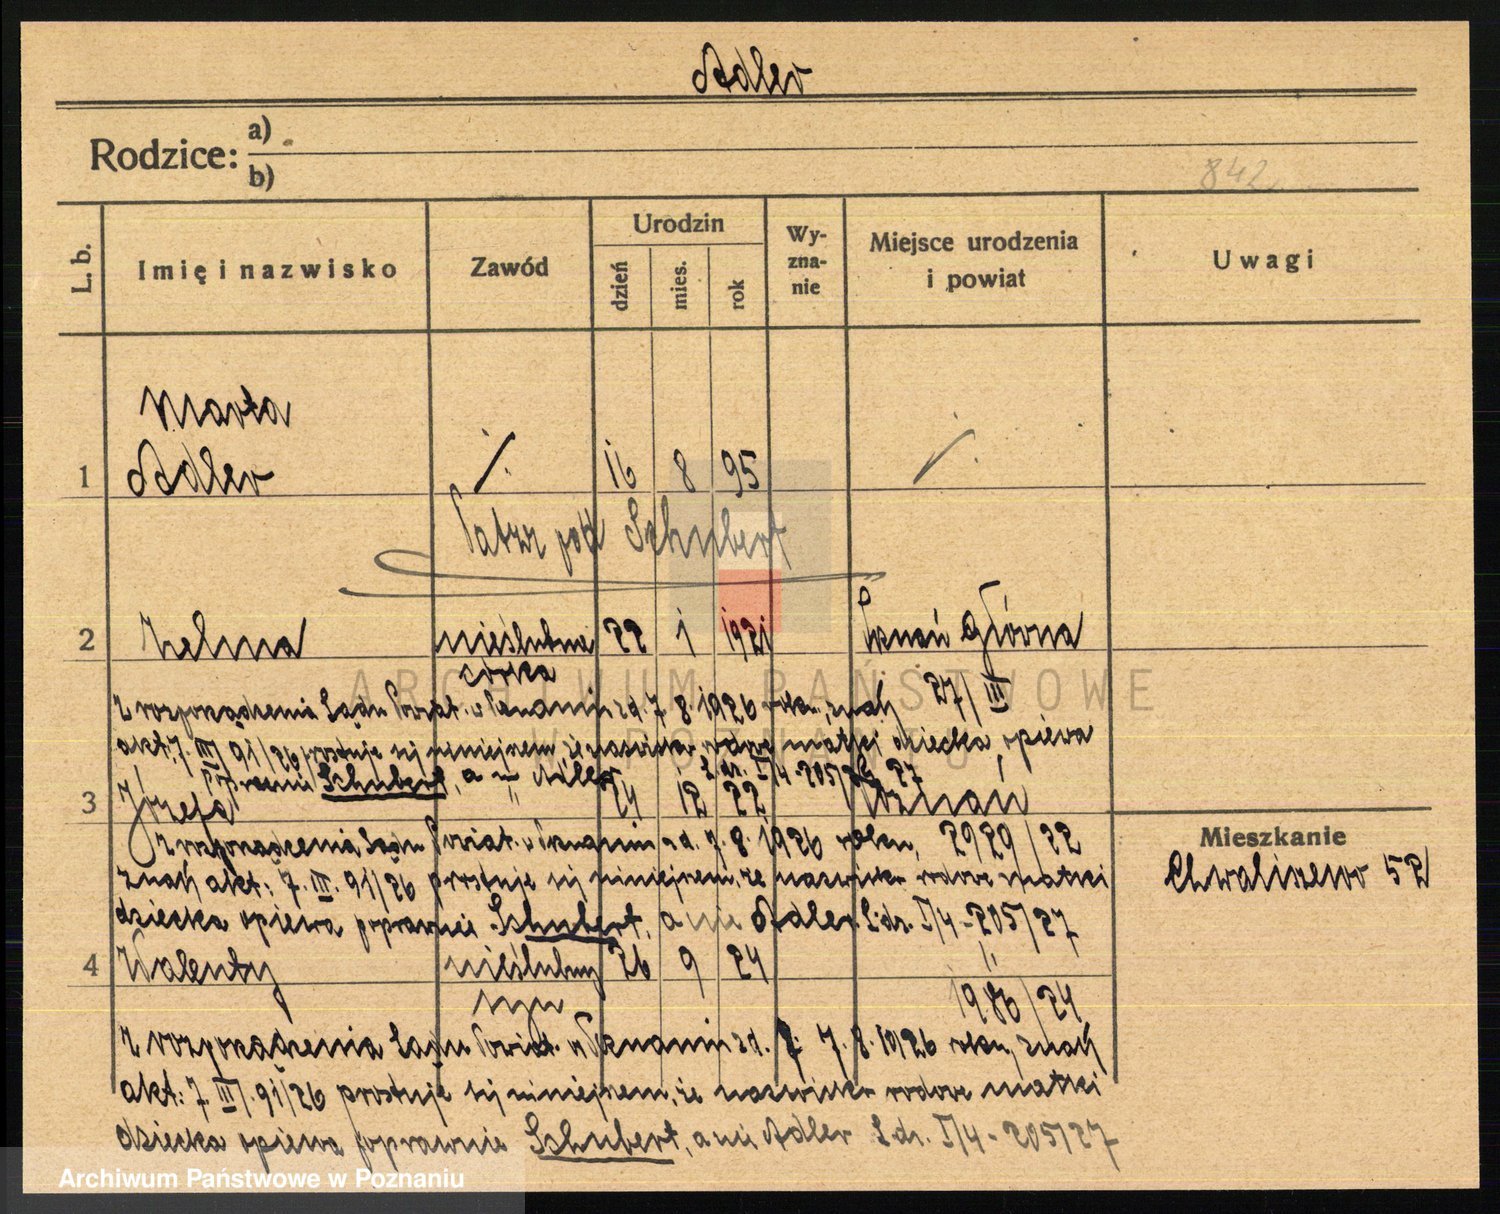 Adler
Rodzice: a)
b)
842
L. b. Imię i nazwisko Zawód Urodzin dzień mies. rok Wy-zna-nie Miejsce urodzenia i powiat Uwagi
Marta
1 Adler 16 8 95
Patrz pod Schubert
2 Zelma nieślubna 22 1 1921 Poznań Główna
córka 27/III
Z rozporządzenia Sądu Powiat. w Poznaniu z d. 7.8.1926 roku, znak
akt: 7. III. 91/26 prostuje się niniejszem, że nazwisko rodowe matki dziecka opiewa
poprawnie Schubert, a nie Adler L. dz. I/4-205/27
3 Józefa " 24 12 22 Poznań
Z rozporządzenia Sądu Powiat. w Poznaniu z d. 7.8.1926 roku, 2929/22
znak akt: 7. III. 91/26 prostuje się niniejszem, że nazwisko rodowe matki
dziecka opiewa poprawnie Schubert, a nie Adler L. dz. I/4-205/27
Mieszkanie
Chwaliszewo 52
4 Walenty nieślubny 26 9 24 "
syn 1986/24
Z rozporządzenia Sądu Powiat. w Poznaniu z d. 7.8.1926 roku, znak
akt: 7. III. 91/26 prostuje się niniejszem, że nazwisko rodowe matki
dziecka opiewa poprawnie Schubert, a nie Adler L. dz. I/4-205/27
ARCHIWUM PAŃSTWOWE
W POZNANIU
Archiwum Państwowe w Poznaniu